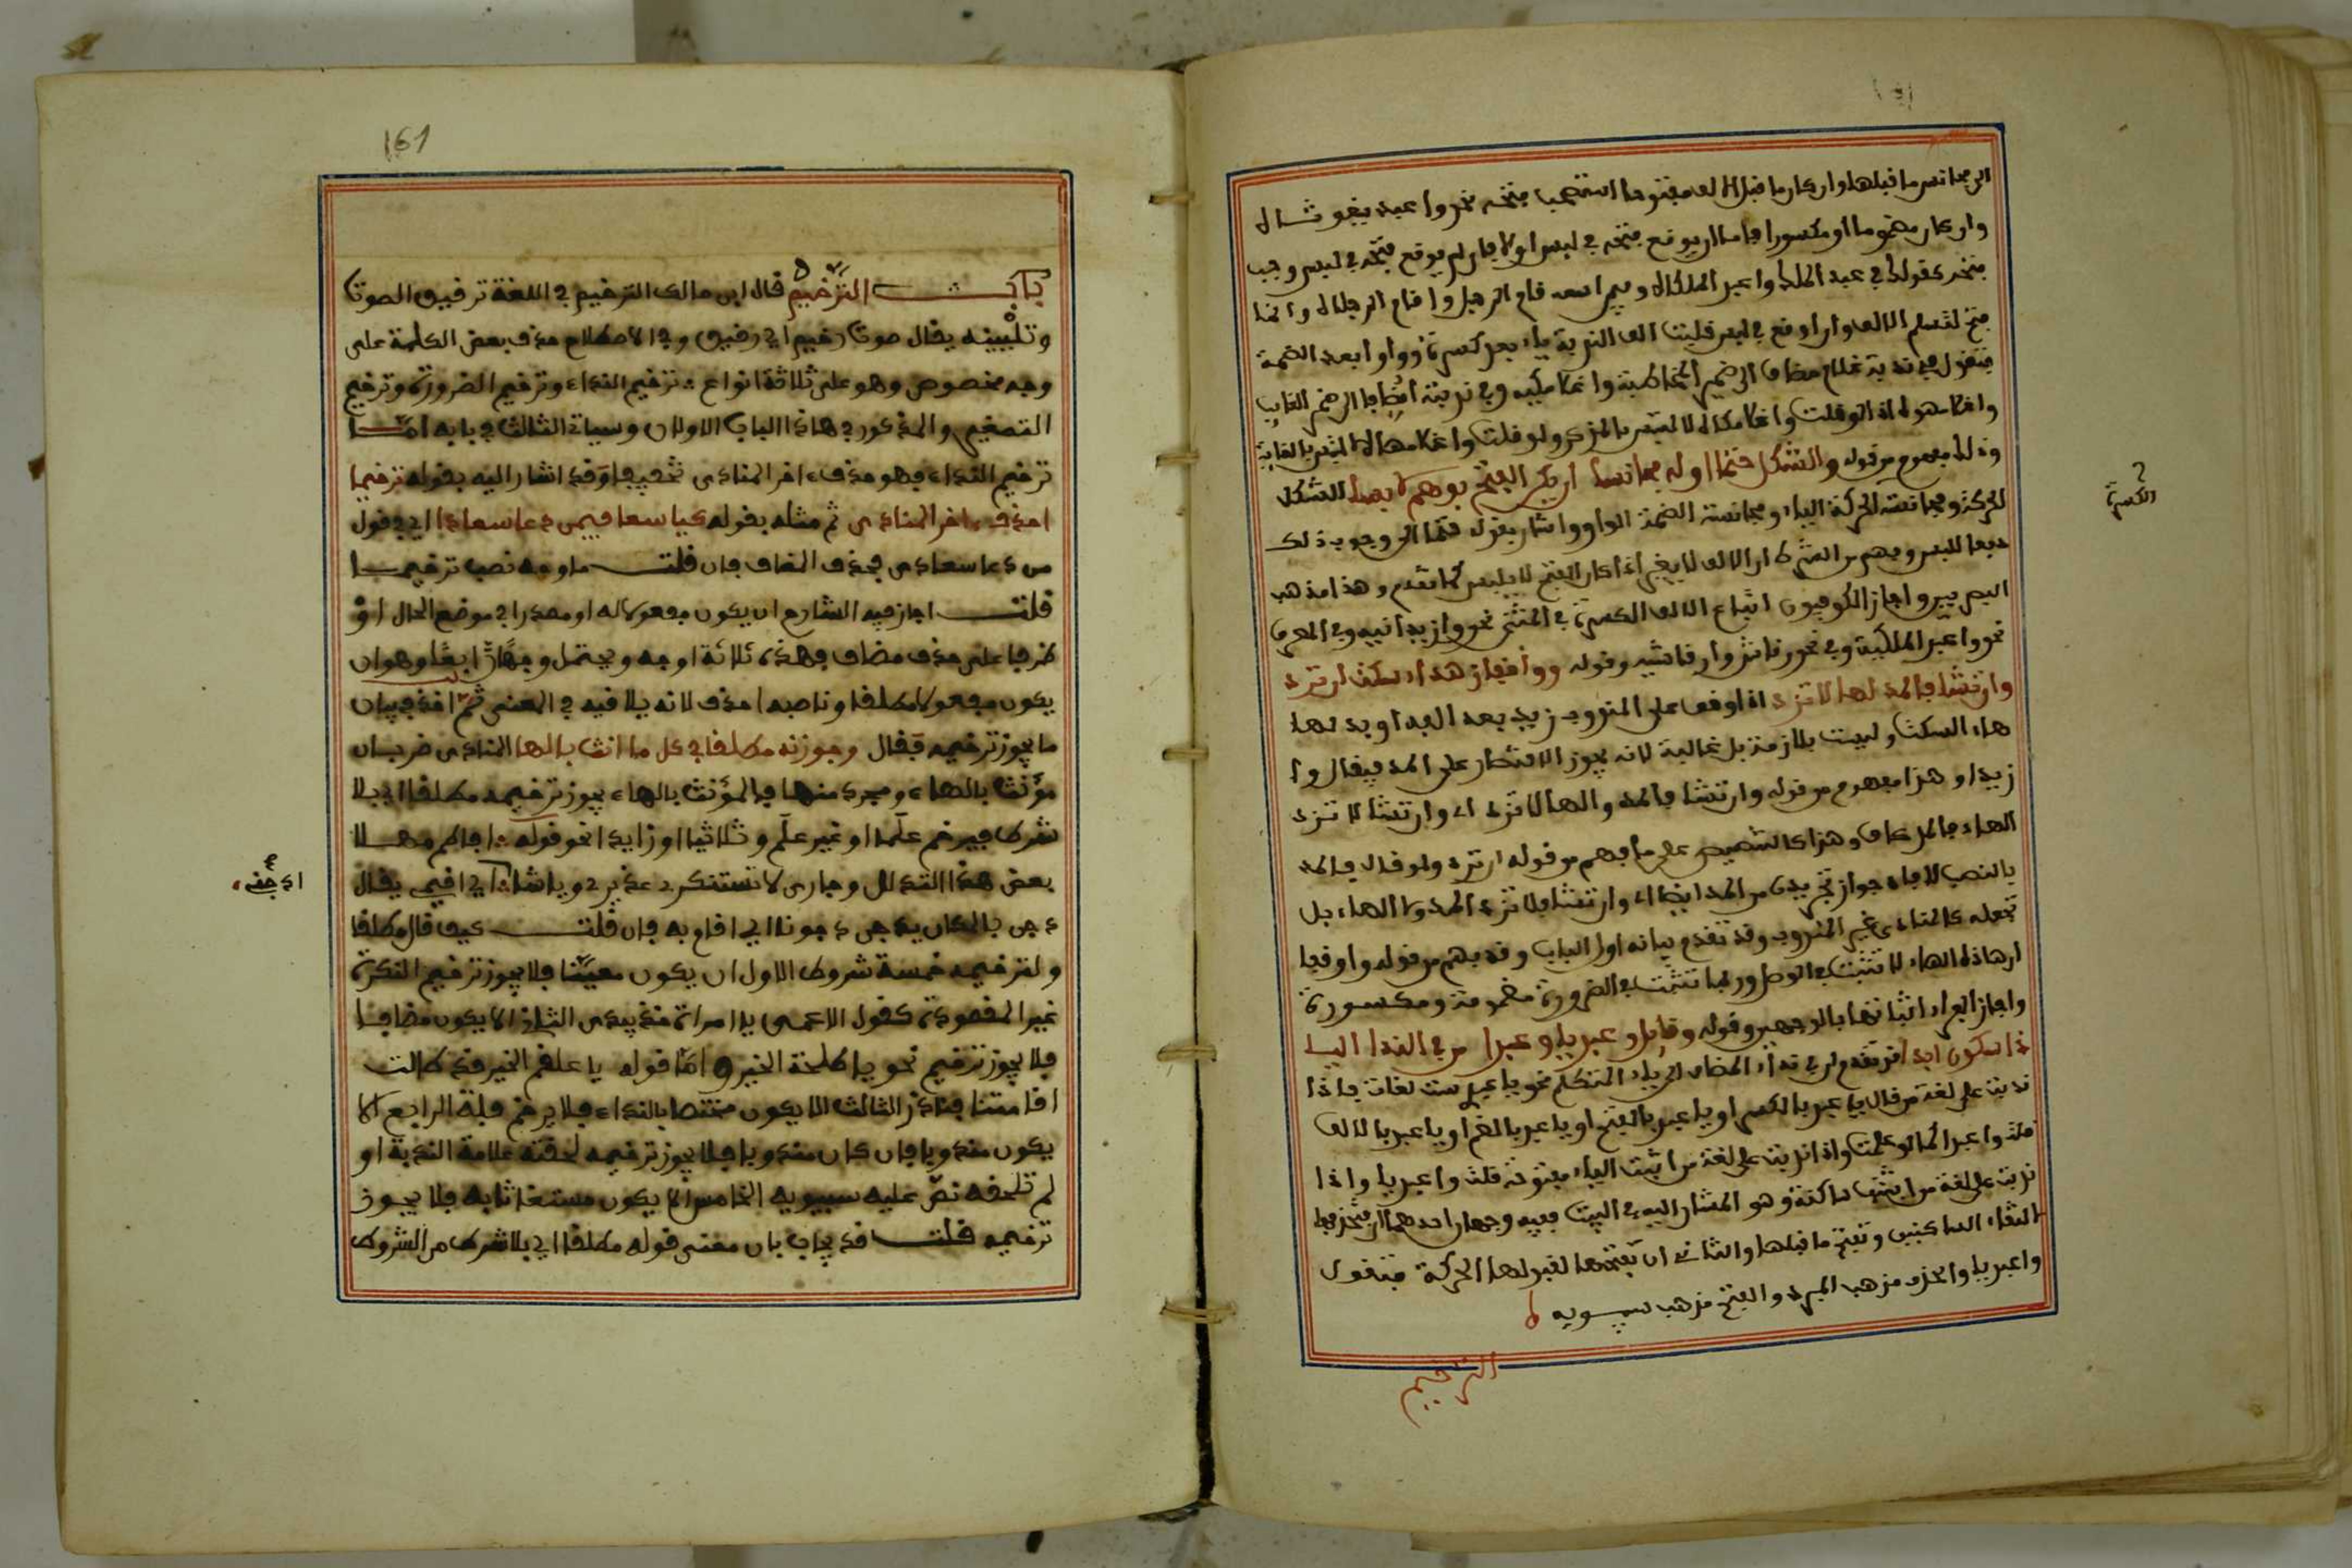 وان كان مضموما او مكسورا فاما ان يوقع فتحه في لبس او لا فان لم يوقع فتحه في لبس وجب
فتح لتسلم الالف وان اوقع في لبس قلبت الف الندبة ياء بعد كسرة وواوا بعد الضمة
فتقول في ندبة غلام مضاف الى ضمير المخاطبة واغلامكيه وفي ندبته مضافا الى ضمير الغايب
وذلك مفهوم من قوله والشكل حتما اوله مجانسا ان يكن الفتح بوهم لابسا الشكل
الحركة ومجانسة الحركة الياء ومجانسة الضمة الواو واشار بقوله حتما الى وجوب ذلك
دفعا للبس وفهم من الشرط ان الالف لا يغير اذا كان الفتح لا يلبس كما تقدم وهذا مذهب
البصريين واجاز الكوفيون اتباع الالف الكسرة في المثنى نحو وازيدانيه وفي المعرف
نحو واعبد الملكيه وفي نحو رقاش وارقاشيه وقوله وواقفا زد هاء سكت ان ترد
وان تشا فالمد والها لا تزد اذا وقف على المندوب زيد بعد الف
هاء السكت وليست بلازمة بل غالبة لانه يجوز الاقتصار على المد فيقال وا
زيدا وهذا مفهوم من قوله وان تشا فالمد والها لا تزد اي وان تشا لا تزد
الهاء فالمد كاف وهذا كالتنصيص على ما فهم من قوله ان ترد ولو قال فالمد
بالنصب لافاد جواز تجريده من المد ايضا اي وان تشا فلا تزد المد ولا الهاء بل
تجعله كالمنادى غير المندوب وقد تقدم بيانه اول الباب وقد فهم من قوله وواقفا
ان هاذه الهاء لا تثبت في الوصل وربما تثبت في الضرورة مضمومة ومكسورة
واجاز الفراء اثباتها بالوجهين وقوله وقايل واعبديا واعبدا من في الندا اليا
ذا سكون ابدا قد تقدم ان في نداء المضاف الى ياء المتكلم نحو يا عبدي ست لغات فاذا
ندبت على لغة من قال يا عبد بالكسر او يا عبد بالفتح او يا عبد بالضم او يا عبدا بالالف
قلت واعبدا كما لو علمت واذا ندبت على لغة من اثبت الياء مفتوحة قلت واعبديا واذا
ندبت على لغة من اثبتها ساكنة وهو المشار اليه في البيت ففيه وجهان احدهما ان تحذفها
لالتقاء الساكنين وتفتح ما قبلها والثاني ان تفتحها لقبولها الحركة فتقول
واعبديا والحذف مذهب المبرد والفتح مذهب سيبويه
الترخيم
الكسرة
161
باب الترخيم قال ابن مالك الترخيم في اللغة ترقيق الصوت
وتليينه يقال صوت رخيم اي رقيق وفي الاصطلاح حذف بعض الكلمة على
وجه مخصوص وهو على ثلاثة انواع ترخيم النداء وترخيم الضرورة وترخيم
التصغير والمذكور في هاذا الباب الاولان وسياتي الثالث في بابه امّا
ترخيم النداء فهو حذف اخر المنادى تخفيفا وقد اشار اليه بقوله ترخيما
احذف اخر المنادى ثم مثله بقوله كيا سعا فيمن دعا سعادا اي في قول
من دعا سعادى فحذف المضاف فان قلت ما وجه نصب ترخيما
قلت اجاز فيه الشارح ان يكون مفعولا له او مصدرا في موضع الحال او
ظرفا على حذف مضاف فهذه ثلاثة اوجه ويحتمل وجها رابعا وهو ان
يكون مفعولا مطلقا وناصبه احذف لانه يلاقيه في المعنى ثم اخذ في بيان
ما يجوز ترخيمه فقال وجوزنه مطلقا في كل ما انث بالها المنادى ضربان
مؤنث بالهاء ومجرد منها فالمؤنث بالهاء يجوز ترخيمه مطلقا اي بلا
شرط فيرخم علما او غير علم وثلاثيا او زايدا نحو قوله افاطم مهلا
بعض هذا التدلل وجاري لا تستنكري عذيري ويا شا ادجني اي اقيمي يقال
دجن بالمكان يدجن دجونا اي اقام به فان قلت كيف قال مطلقا
ولترخيمه خمسة شروط الاول ان يكون معيّنا فلا يجوز ترخيم النكرة
غير المقصودة كقول الاعمى يا امراة خذي بيدي الثاني الا يكون مضافا
فلا يجوز ترخيم نحو يا طلحة الخير وامّا قوله يا علقم الخير قد طالت
اقامتنا فنادر الثالث الا يكون مختصا بالنداء فلا يرخم فلة الرابع الا
يكون مندوبا فان كان مندوبا فلا يجوز ترخيمه لحقته علامة الندبة او
لم تلحقه نصّ عليه سيبويه الخامس الا يكون مستغاثا به فلا يجوز
ترخيمه قلت قد يجاب بان معنى قوله مطلقا اي بلا شرط من الشروط